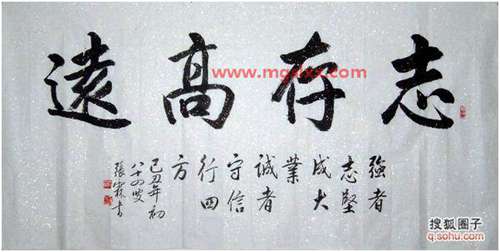 志存高遠
強者
志堅
成大
業
誠者
守信
行四
方
己丑年初
八十四叟
搜狐圈子
q.sohu.com